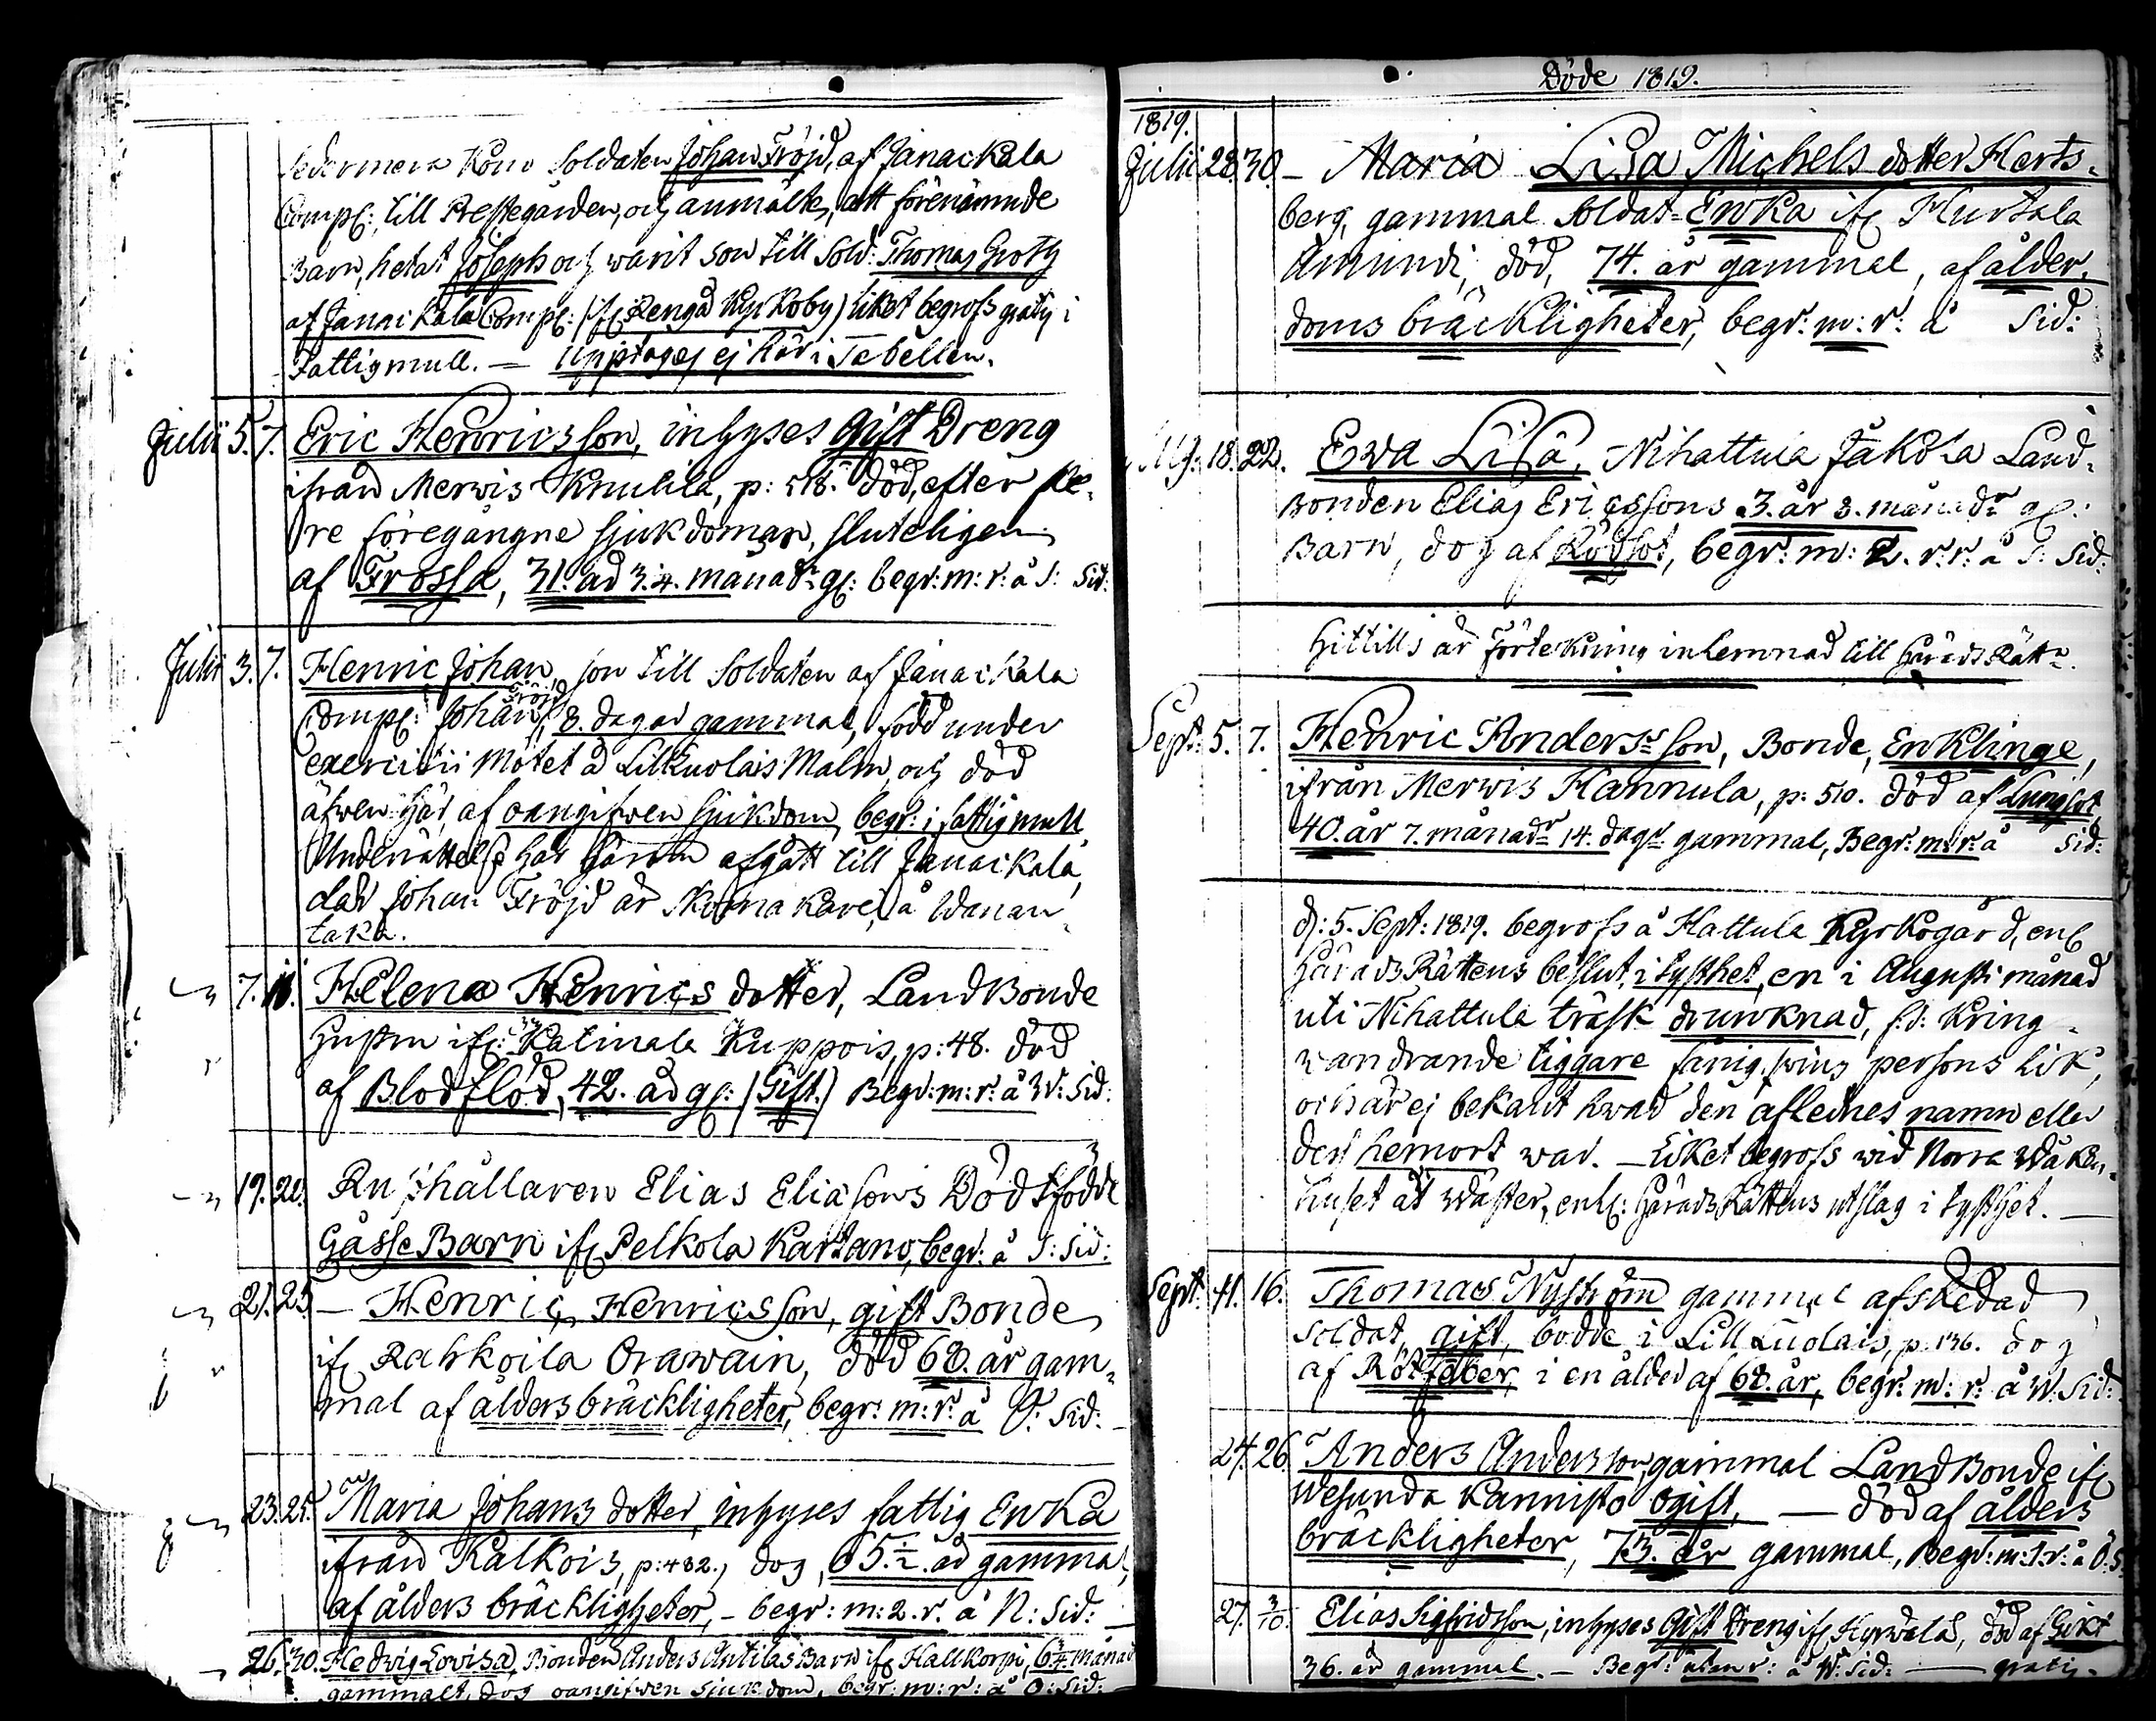 sedermera kom Soldaten Johan Fröjd, af Janackala
Comp: till Prestegården, och anmälte, att förenämnde
Barn, hetat Joseph och warit son till Sold: Thomas Groth
af Janackala Comp: (ifr Renga Kyrkoby) liket begrofs gratis i
Fattigmull. — Upptages ej här i Tabellen.
Julii 5. 7. Eric Henricsson, inhyses gift Dreng
ifrån Merwis Knuhila, p: 518. död, efter fle-
re föregångne sjukdomar, sluteligen
af Frossa, 31. år 3.4. månadr gl: begr: m: r: å S: Sid:
Julii 3. 7. Henric Johan, son till Soldaten af Janackala
Comp: Johan Fröjd, 8. dagar gammal, född under
exercitii Mötet å Lilluolais Malm, och död
äfwen här, af oangifwen sjukdom, begr: i fattigmull
Underrättelse har härom afgått till Janackala,
dår Johan Fröjd är å Wanan-
taka.
7. 11. Helena Henrics dotter, LandBonde
Hustru ifr: Katinala Kuppois, p: 48. död
af Blodflöd, 42. år gl: (Gift.) Begr: m: r: å W: Sid:
19. 20. Rusthållaren Elias Eliasons Dödfödde
GåsseBarn ifr Pelkola Kartano, begr: å S: Sid:
21. 23. — Henric Henricsson, gift Bonde
ifr Rahkoila Orawain, död 68. år gam-
mal af ålders bräckligheter, begr: m: r: å Ö: Sid:
23. 25. Maria Johans dotter, inhyses fattig Enka
ifrån Kalkois, p: 482., dog, 65.½. år gammal,
af ålders bräckligheter, — begr: m: 2. r. å N: Sid:
26. 30. Hedwig Lovisa, Bonden Anders Antilas Barn ifr Hallkorpi, 6¾ månad
gammalt, dog oangifwen sjukdom, begr: m: r: å Ö: Sid:
Döde 1819.
1819.
Julii 28. 30. — Maria Lisa Michels dotter Herts-
berg, gammal Soldat-Enka ifr Hurtala
Amundi, död, 74. år gammal, af ålder-
doms bräckligheter, begr: m: r: å Sid:
Aug: 18. 22. Ewa Lisa, Nihattula Jakola Land-
Bonden Elias Ericssons 3. år 8. månadr gl:
Barn, dog af Rödsot, begr: m: 2. r. r: å S: Sid:
Hittills är Förtekning inlemnad till HäradsRättn.
Sept: 5. 7. Henric Anders son, Bonde, Enklinge,
ifrån Merwis Hannula, p: 510. död af Lungsot
40. år 7. månadr 14. dagr gammal, Begr: m: r: å Sid:
d: 5. Sept: 1819. begrofs å Hattula Kyrkogård, enl
HäradsRättens beslut, i tysthet, en i Augusti månad
uti Nihattula träsk drunknad, s: d: kring-
wandrande tiggare fånig qwins persons lik,
och är ej bekant hwad den aflednes namn eller
dess hemort war. — Liket begrofs wid Norra Wåken-
huset åt Wäster, enl: HäradsRättens utslag i tysthet. —
Sept: 11. 16. Thomas Nyström gammal afskedad
Soldat, gift, bodde i Lill Luolais, p. 136. dog
af Rötfeber, i en ålder af 68. år, begr: m: r: å W. Sid:
24. 26. Anders Andersson, gammal LandBonde ifr
Wesunda Kannisto ogift, — död af ålders
bräckligheter, 73. år gammal, Begr: m: s: r: å Ö: S:
27. 3/10. Elias Sigfridsson, inhyses Gift Dreng ifr Hyrwälä, död af Gikt
36. år gammal. — Begr: utan r: å W: Sid: — gratis.